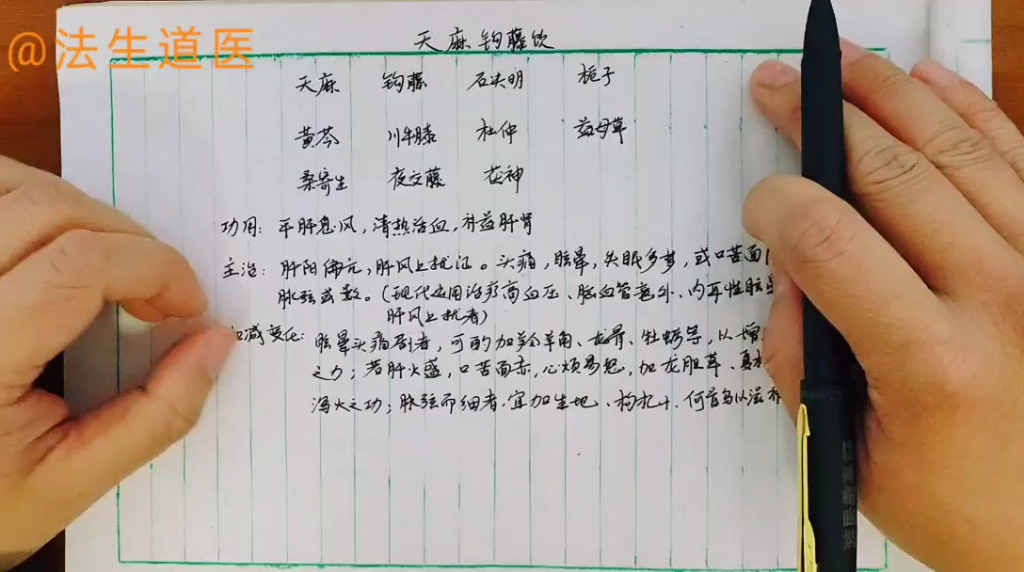 @法生道医
天麻钩藤饮
天麻 钩藤 石决明 栀子
黄芩 川牛膝 杜仲 益母草
桑寄生 夜交藤 茯神
功用：平肝息风，清热活血，补益肝肾
主治：肝阳偏亢，肝风上扰证。头痛，眩晕，失眠多梦，或口苦面
脉弦或数。（现代应用治疗高血压、脑血管意外、内耳性眩
肝风上扰者）
加减变化：眩晕头痛剧者，可酌加羚羊角、龙骨、牡蛎等，以增
之力；若肝火盛，口苦面赤，心烦易怒，加龙胆草、夏
泻火之功；脉弦而细者，宜加生地、枸杞子、何首乌以滋补